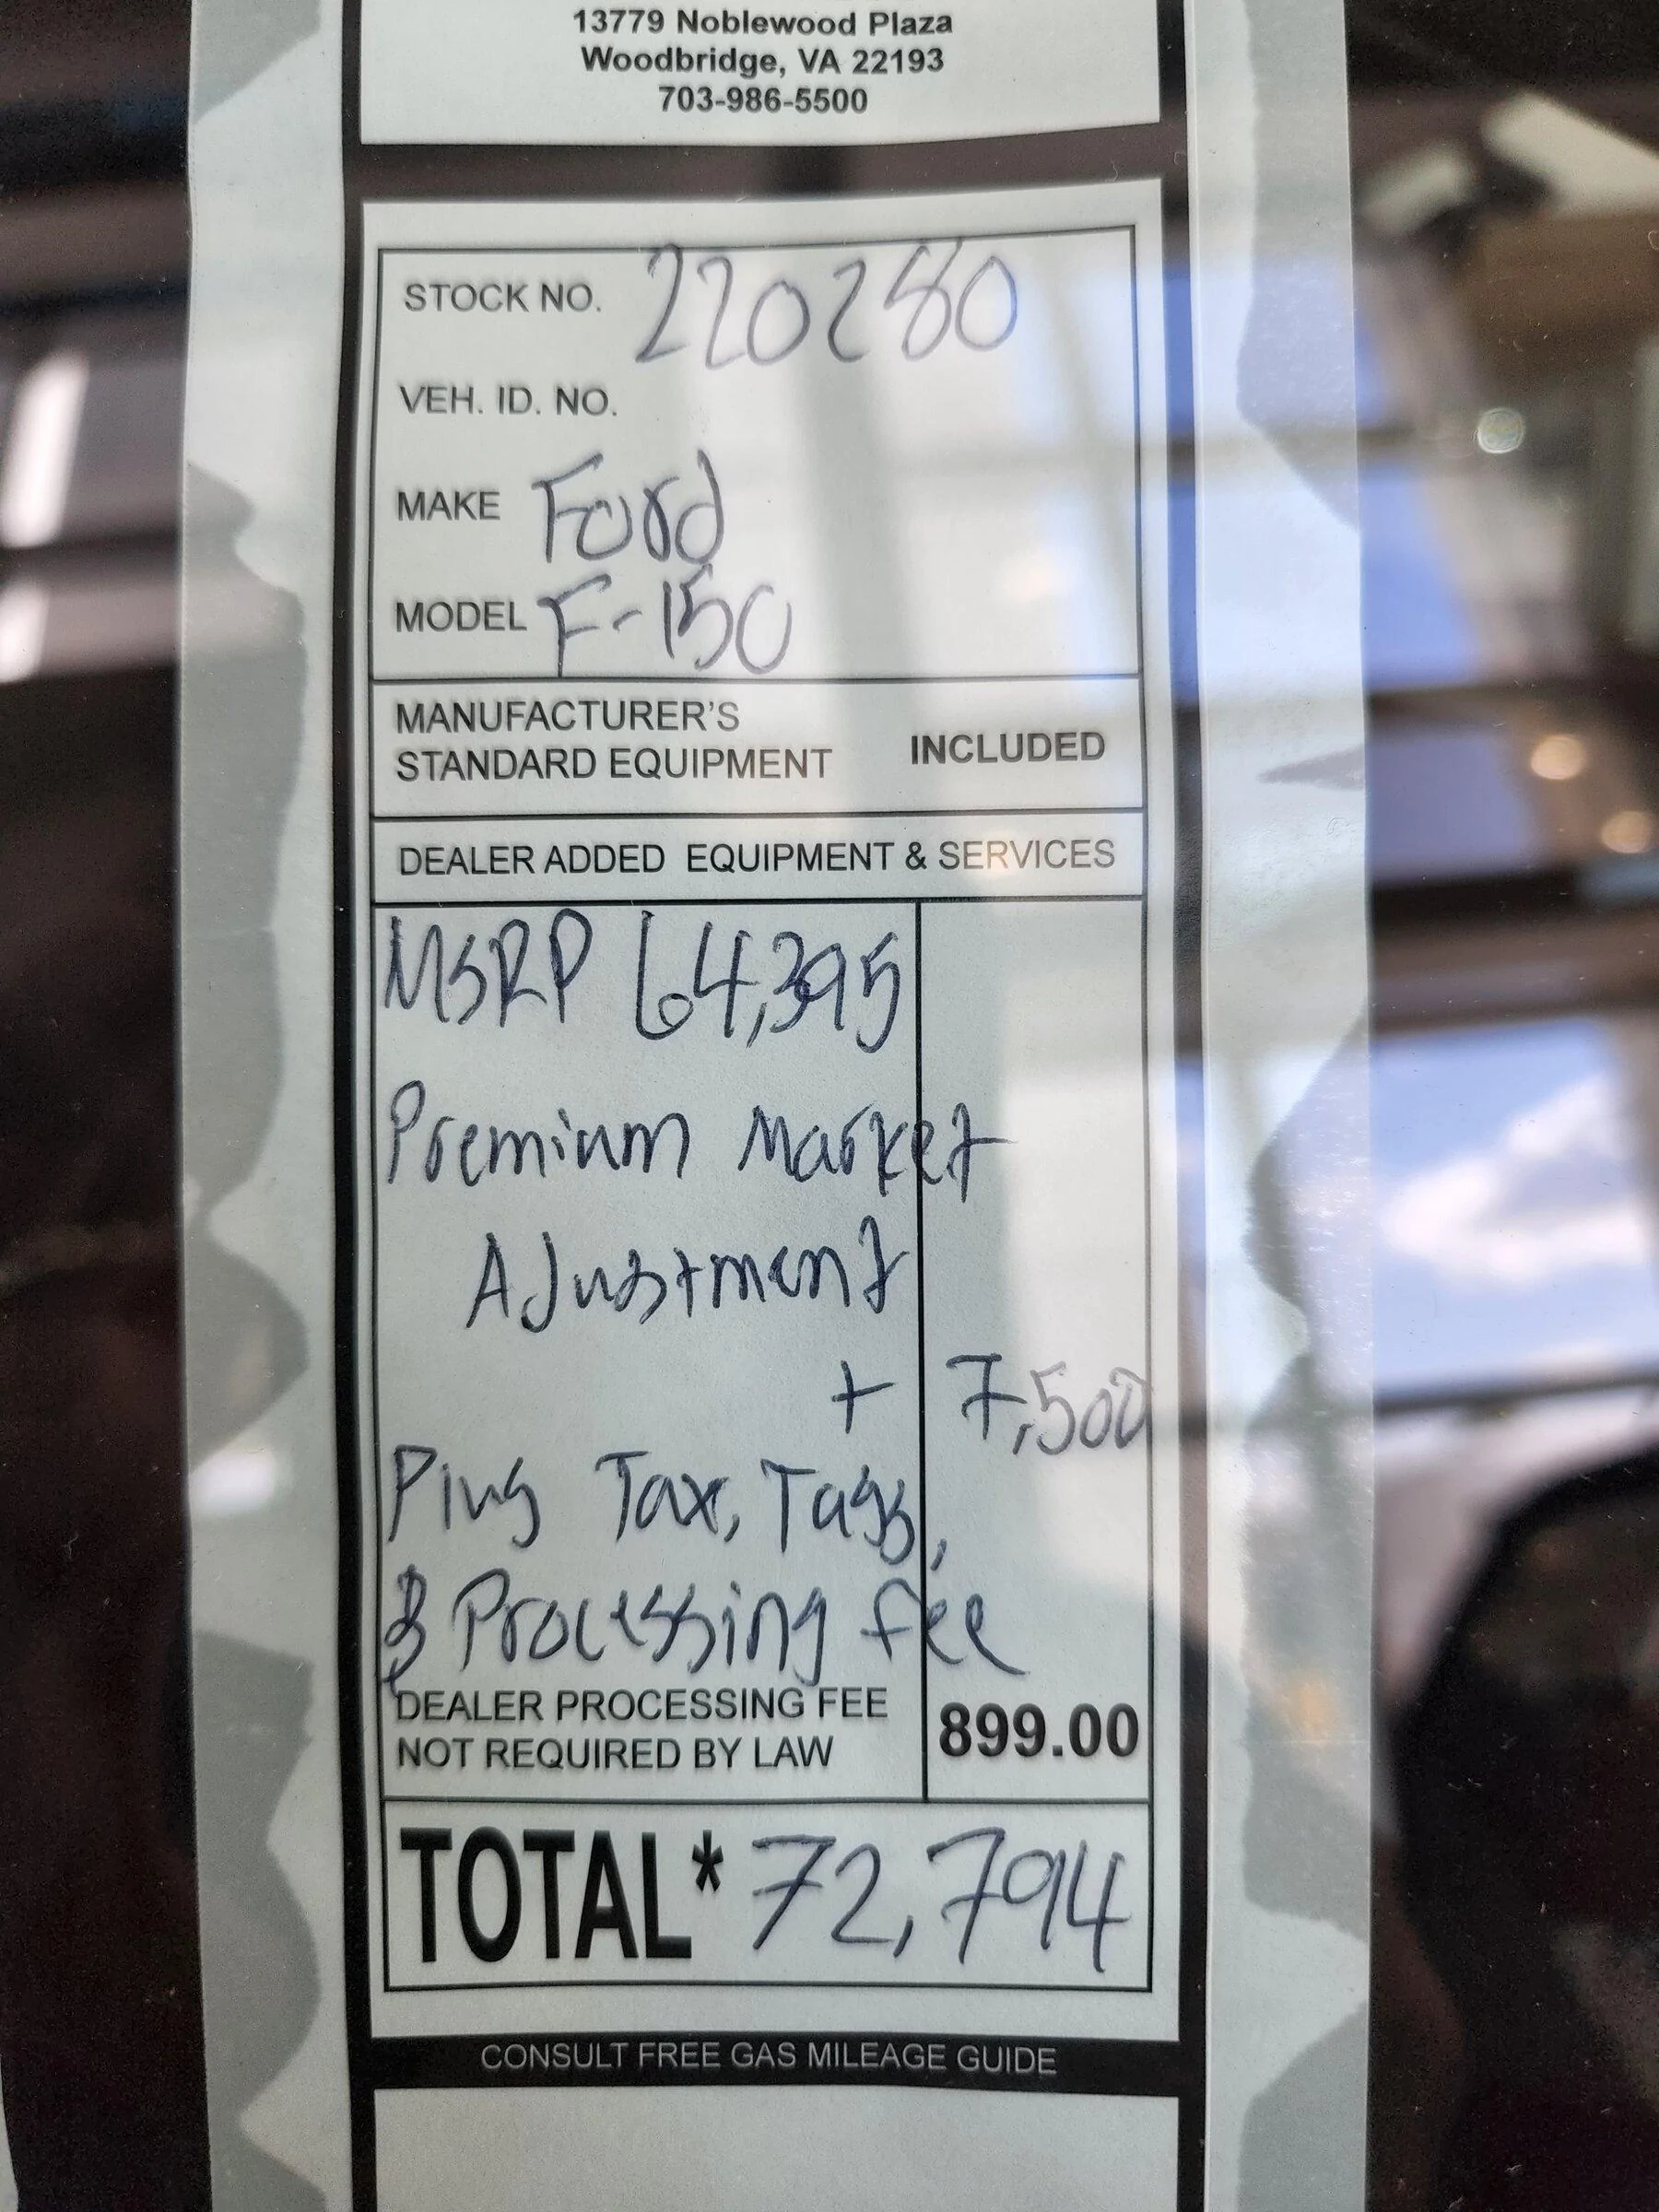 13779 Noblewood Plaza
Woodbridge, VA 22193
703-986-5500
STOCK NO. 220280
VEH. ID. NO.
MAKE Ford
MODEL F-150
MANUFACTURER'S
STANDARD EQUIPMENT INCLUDED
DEALER ADDED EQUIPMENT & SERVICES
MSRP 64,395
Premium Market
Adjustment
+ 7,500
Plus Tax, Tags,
& Processing fee
DEALER PROCESSING FEE
NOT REQUIRED BY LAW 899.00
TOTAL* 72,794
CONSULT FREE GAS MILEAGE GUIDE